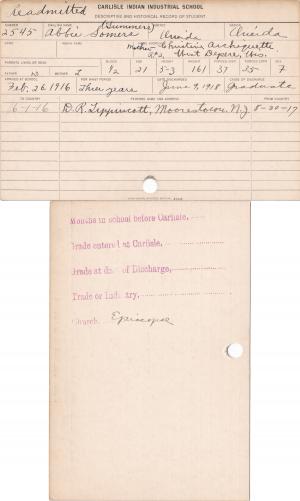 Readmitted CARLISLE INDIAN INDUSTRIAL SCHOOL
DESCRIPTIVE AND HISTORICAL RECORD OF STUDENT
NUMBER ENGLISH NAME AGENCY NATION
(Summers)
2545 Abbie Somers Oneida Oneida
Mother Christine Archiquette
R#2, West Depere, Wis.
PARENTS LIVING OR DEAD BLOOD AGE HEIGHT WEIGHT FORCED INSP. FORCED EXPR. SEX
FATHER MOTHER
L 1/2 21 5-3 161 37 35 F
ARRIVED AT SCHOOL FOR WHAT PERIOD DATE DISCHARGED CAUSE OF DISCHARGE
Feb. 26 1916 Three years June 9, 1918 Graduate
TO COUNTRY PATRONS NAME AND ADDRESS FROM COUNTRY
6-1-16 D. R. Lippincott, Moorestown, N.J. 8-30-17
Months in school before Carlisle,
Grade entered at Carlisle,
Grade at date of Discharge,
Trade or Industry,
Church, Episcopal